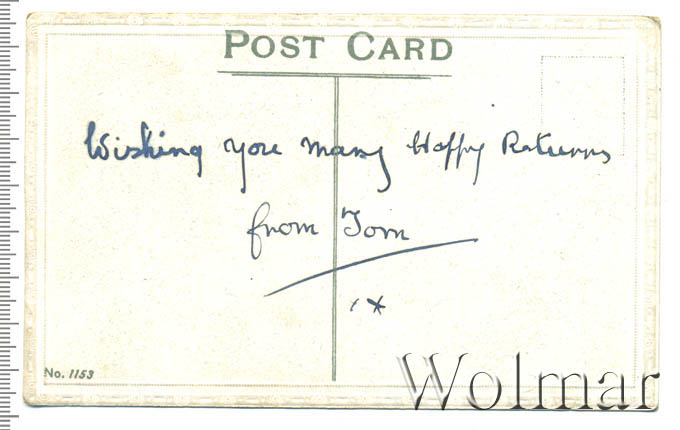 POST CARD
Wishing you many Happy Returns
from Tom
No. 1153
Wolmar